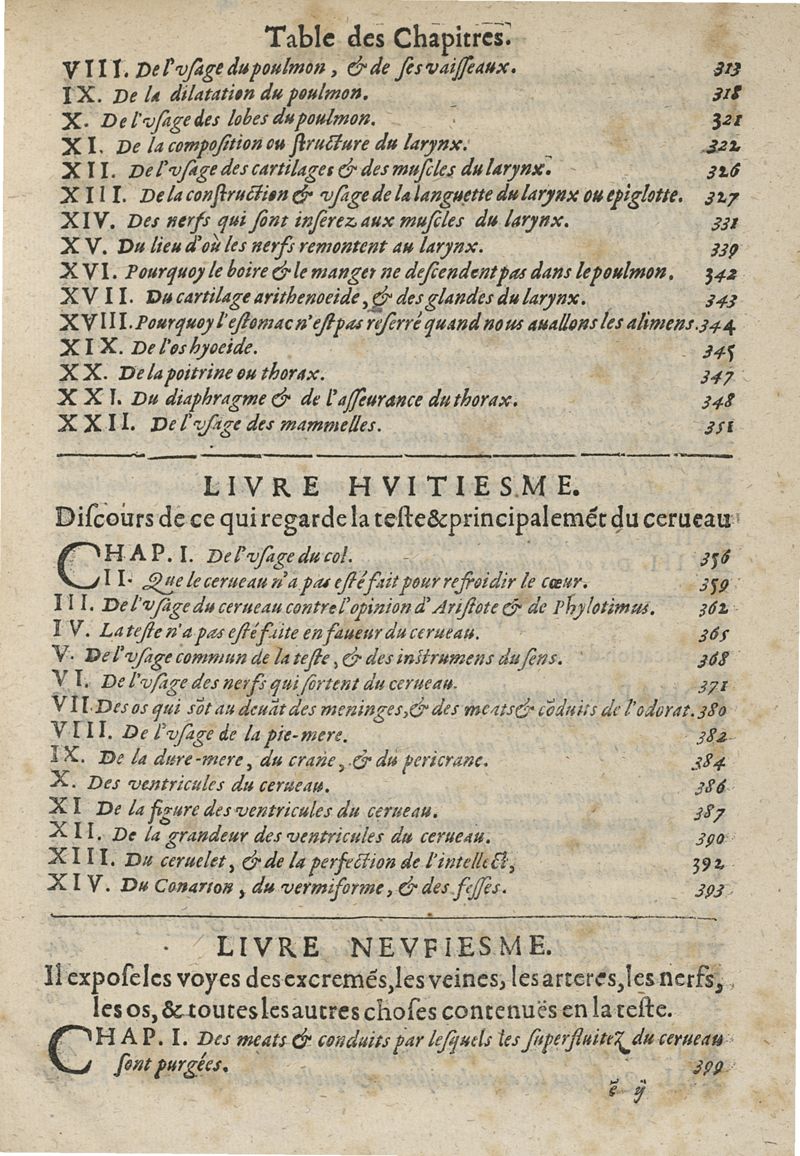 Table des Chapitres.
VIII. De l'vſage du poulmon, & de ſes vaiſſeaux. 313
IX. De la dilatation du poulmon. 318
X. De l'vſage des lobes du poulmon. 321
XI. De la compoſition ou ſtructure du larynx. 322
XII. De l'vſage des cartilages & des muſcles du larynx. 326
XIII. De la conſtruction & vſage de la languette du larynx ou epiglotte. 327
XIV. Des nerfs qui ſont inſerez aux muſcles du larynx. 331
XV. Du lieu d'où les nerfs remontent au larynx. 339
XVI. Pourquoy le boire & le manger ne deſcendent pas dans le poulmon. 342
XVII. Du cartilage arithenoeide, & des glandes du larynx. 343
XVIII. Pourquoy l'eſtomac n'eſt pas reſerré quand nous auallons les alimens. 344
XIX. De l'os hyoeide. 345
XX. De la poitrine ou thorax. 347
XXI. Du diaphragme & de l'aſſeurance du thorax. 348
XXII. De l'vſage des mammelles. 351
LIVRE HVITIESME.
Diſcours de ce qui regarde la teſte & principalemẽt du cerueau
CHAP. I. De l'vſage du col. 356
II. Que le cerueau n'a pas eſté fait pour refroidir le cœur. 359
III. De l'vſage du cerueau contre l'opinion d'Ariſtote & de Phylotimus. 362
IV. La teſte n'a pas eſté faite en faueur du cerueau. 365
V. De l'vſage commun de la teſte, & des inſtrumens du ſens. 368
VI. De l'vſage des nerfs qui ſortent du cerueau. 371
VII. Des os qui sõt au deuãt des meninges, & des meats & cõduits de l'odorat. 380
VIII. De l'vſage de la pie-mere. 382
IX. De la dure-mere, du crane, & du pericrane. 384
X. Des ventricules du cerueau. 386
XI De la figure des ventricules du cerueau. 387
XII. De la grandeur des ventricules du cerueau. 390
XIII. Du ceruelet, & de la perfection de l'intellect, 392
XIV. Du Conarion, du vermiforme, & des feſſes. 393
LIVRE NEVFIESME.
Il expoſe les voyes des excremẽs, les veines, les arteres, les nerfs,
les os, & toutes les autres choſes contenuës en la teſte.
CHAP. I. Des meats & conduits par leſquels les ſuperfluitez du cerueau
ſont purgées. 399
ẽ ij